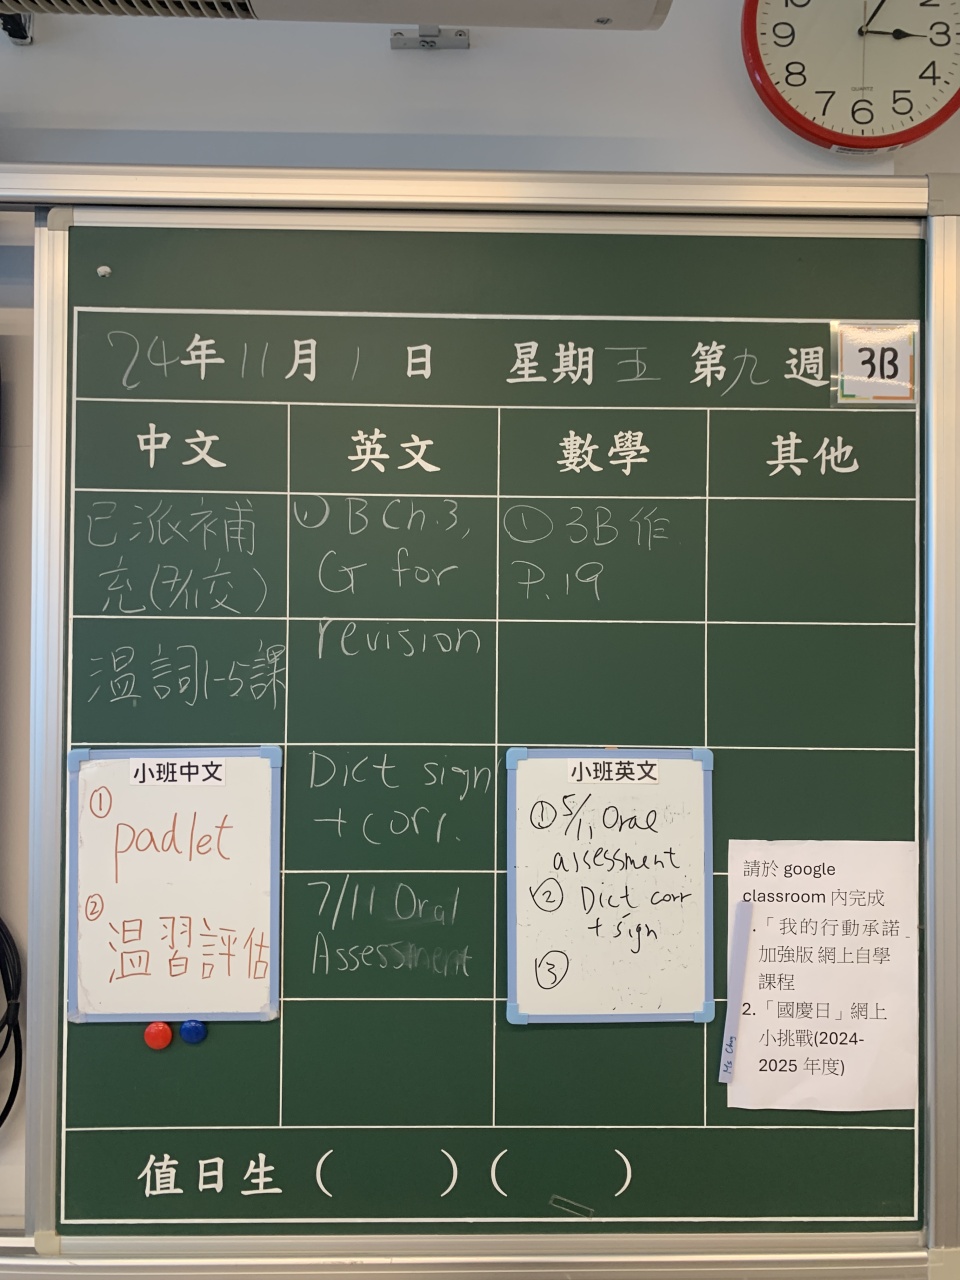 2
9
3
8
4
7
6
5
QUARTZ
24年11月1日 星期五 第九週 3B
中文
英文
數學
其他
已派補
充(7/11交)
溫詞1-5課
① B Ch.3,
G for
revision
Dict sign
+ corr.
7/11 Oral
Assessment
① 3B作
P.19
小班中文
①
padlet
②
溫習評估
小班英文
① 5/11 Oral
assessment
② Dict corr
+ sign
③
請於 google
classroom 內完成
.「我的行動承諾
加強版 網上自學
課程
2.「國慶日」網上
小挑戰(2024-
2025 年度)
值日生 ( ) ( )